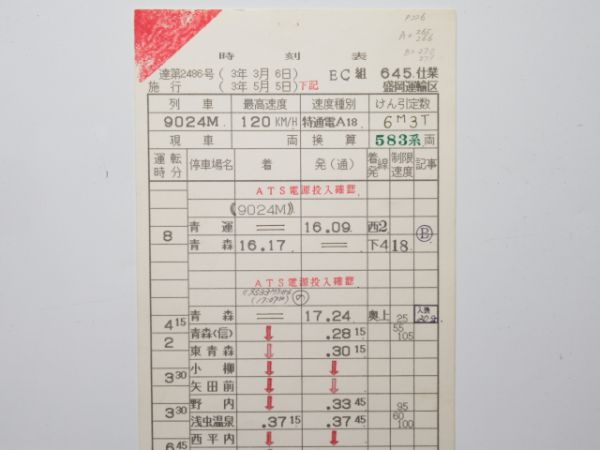 P226
A+ 265
266
B+ 270
271
時 刻 表
達第2486号 ( 3年 3月 6日) EC組 645.仕業
施 行 ( 3年 5月 5日)下記 盛岡運輸区
列 車 最高速度 速度種別 けん引定数
9024M. 120 KM/H 特通電A18 6M3T
現 車 両 換 算 583系 両
運転時分 停車場名 着 発(通) 着線発 制限速度 記事
ATS電源投入確認
(9024M)
8 青 運 16.09. 西2 E
青 森 16.17 下4 18
ATS電源投入確認
4 15 青 森 17.24. 奥上 25
2 青森(信) .28 15 55 105
東青森 .30 15
3 30 小 柳
矢田前
3 30 野 内 .33 45 95
浅虫温泉 .37 15 .37 45 60 100
6 45 西平内